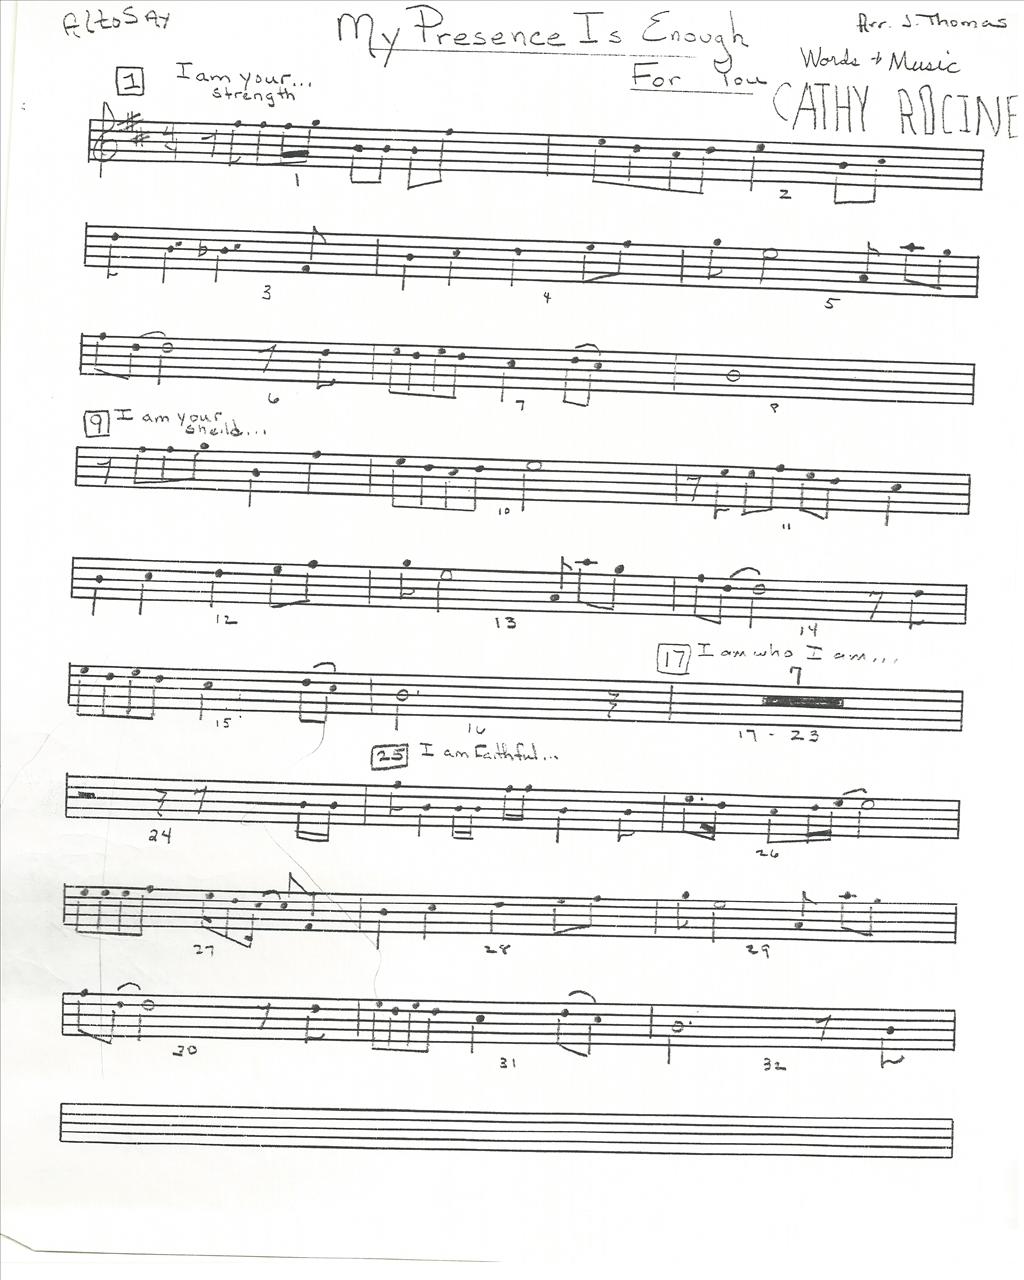 Alto Sax
My Presence Is Enough
For You
Arr. J. Thomas
Words + Music
CATHY ROCINE
1 I am your...
strength
1 2
3 4 5
6 7 8
9 I am your
sheild...
10 11
12 13 14
17 I am who I am...
7
15 16 17 - 23
25 I am Faithful...
24 26
27 28 29
30 31 32